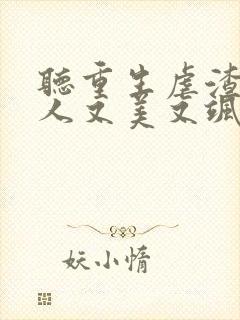 聽重生虐渣
人又美又颯
妖小惰